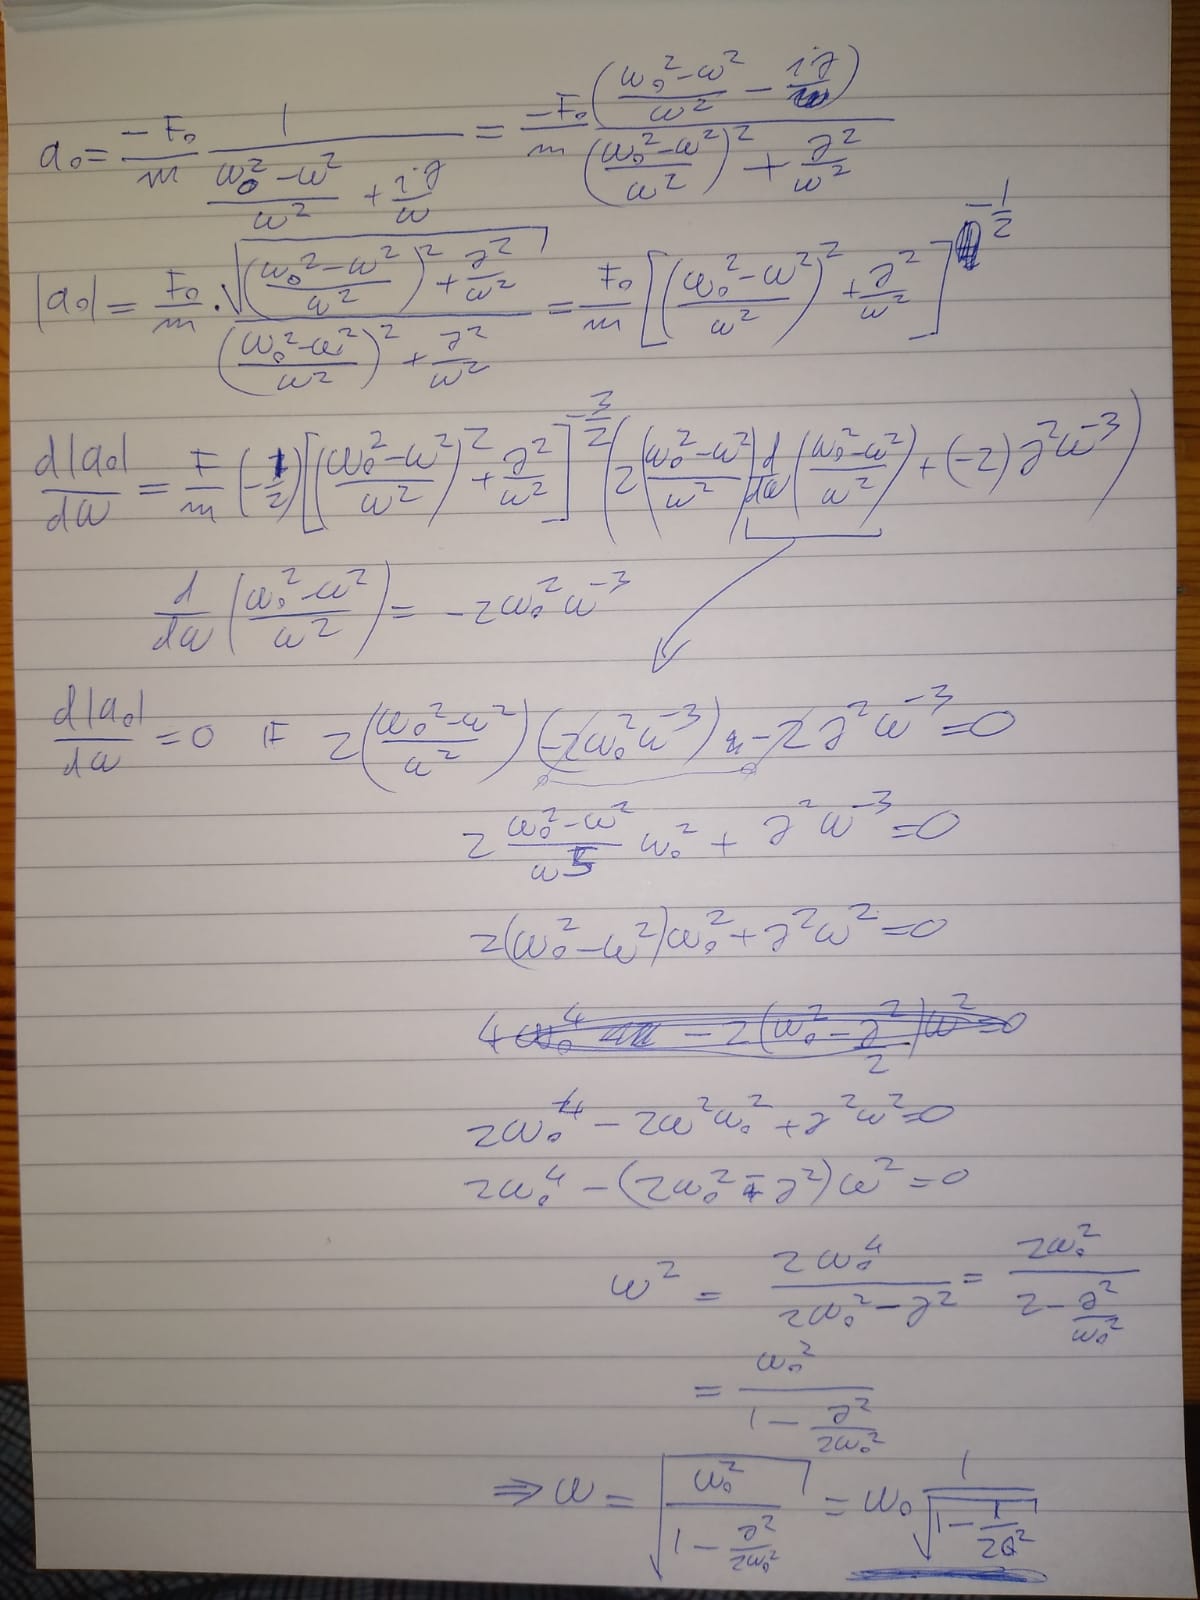 a₀ = -F₀/m · 1/((ω₀²-ω²)/ω² + iγ/ω) = -F₀/m ((ω₀²-ω²)/ω² - iγ/ω)/(((ω₀²-ω²)/ω²)² + γ²/ω²)
|a₀| = F₀/m · √(((ω₀²-ω²)/ω²)² + γ²/ω²)/(((ω₀²-ω²)/ω²)² + γ²/ω²) = F₀/m [((ω₀²-ω²)/ω²)² + γ²/ω²]^(-1/2)
d|a₀|/dω = F/m (-1/2)[((ω₀²-ω²)/ω²)² + γ²/ω²]^(-3/2) (2((ω₀²-ω²)/ω²) d/dω((ω₀²-ω²)/ω²) + (-2)γ²ω⁻³)
d/dω((ω₀²-ω²)/ω²) = -2ω₀²ω⁻³
d|a₀|/dω = 0 IF 2((ω₀²-ω²)/ω²)(-2ω₀²ω⁻³) - 2γ²ω⁻³ = 0
2 (ω₀²-ω²)/ω⁵ ω₀² + γ²ω⁻³ = 0
2(ω₀²-ω²)ω₀² + γ²ω² = 0
2ω₀⁴ - 2ω²ω₀² + γ²ω² = 0
2ω₀⁴ - (2ω₀² - γ²)ω² = 0
ω² = 2ω₀⁴/(2ω₀²-γ²) = 2ω₀²/(2 - γ²/ω₀²)
= ω₀²/(1 - γ²/2ω₀²)
⇒ ω = √(ω₀²/(1 - γ²/2ω₀²)) = ω₀ 1/√(1 - 1/2Q²)